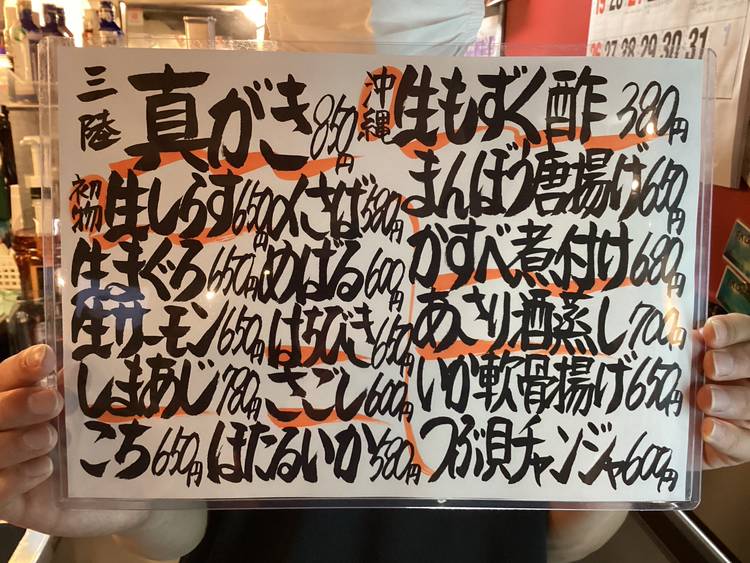 三陸 真がき 850円
初物 生しらす 650円
〆さば 580円
生まぐろ 650円
めばる 600円
生サーモン 650円
はちびき 650円
しまあじ 780円
さごし 600円
こち 650円
ほたるいか 580円
沖縄 生もずく酢 380円
まんぼう唐揚げ 650円
かすべ煮付け 680円
あさり酒蒸し 700円
いか軟骨揚げ 650円
つぶ貝チャンジャ 600円
28 29 30 31